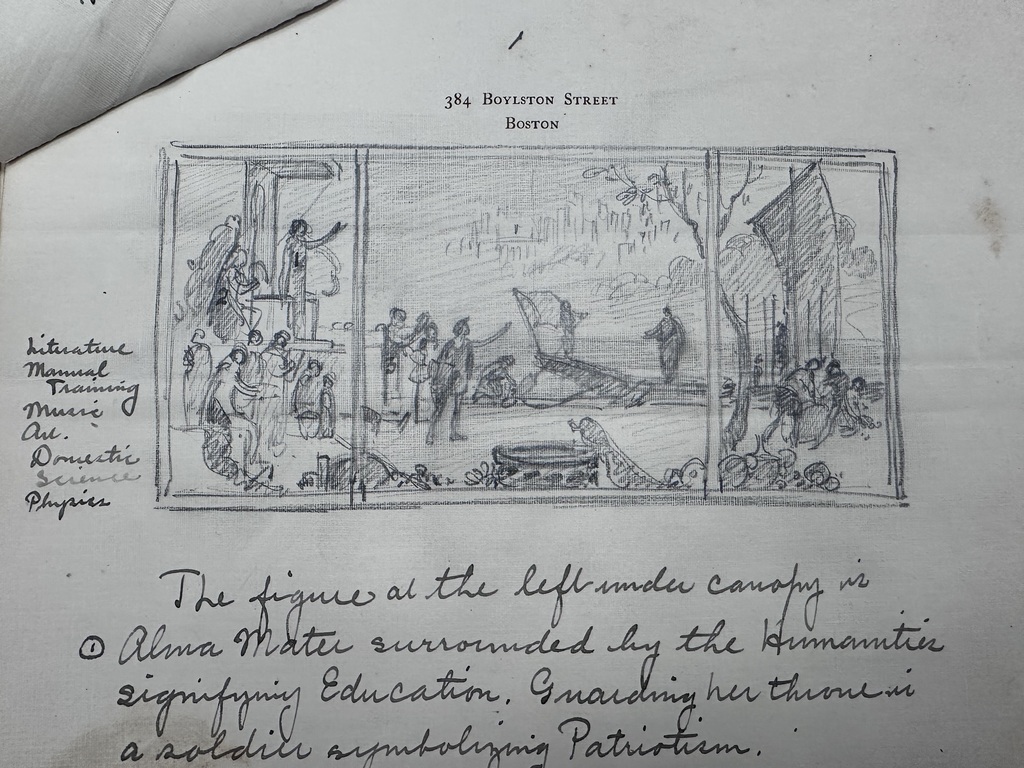 384 Boylston Street
Boston
Literature
Manual
Training
Music
Art.
Domestic
Science
Physics
The figure at the left under canopy is
① Alma Mater surrounded by the Humanities
signifying Education. Guarding her throne is
a soldier symbolizing Patriotism.